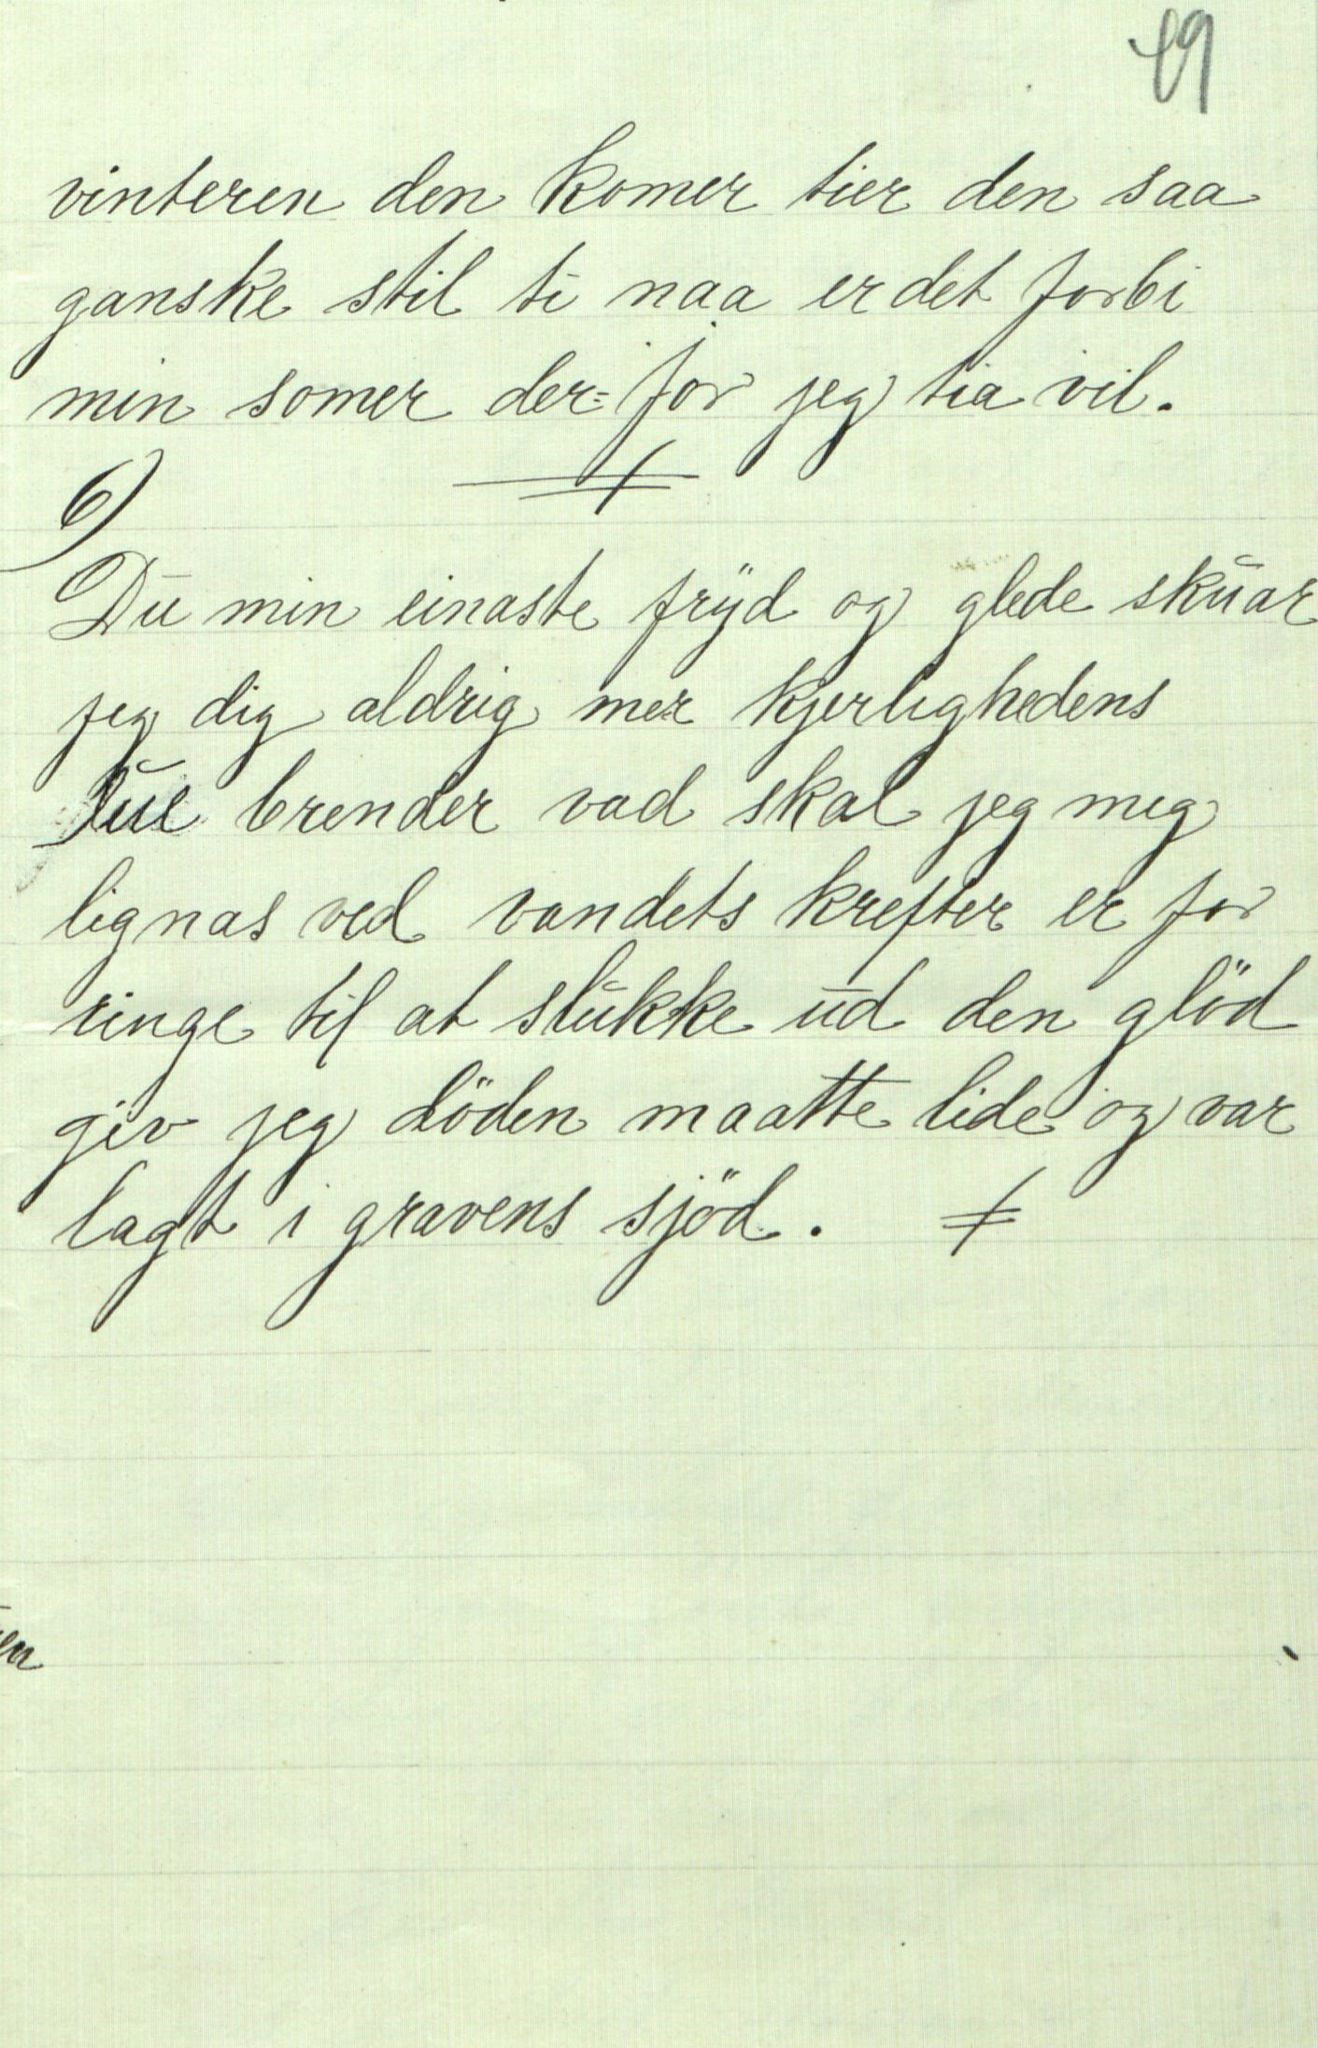 49
vinteren den komer tier den saa
ganske stil ti naa er det forbi
min somer der=for jeg tia vil.
6)
Du min einaste fryd og glede skuar
jeg dig aldrig mer kjerlighedens
lue brender vad skal jeg meg
lignas ved vandets krefter er for
ringe til at slukke ud den glöd
giv jeg döden maatte lide og var
lagt i gravens sjöd.